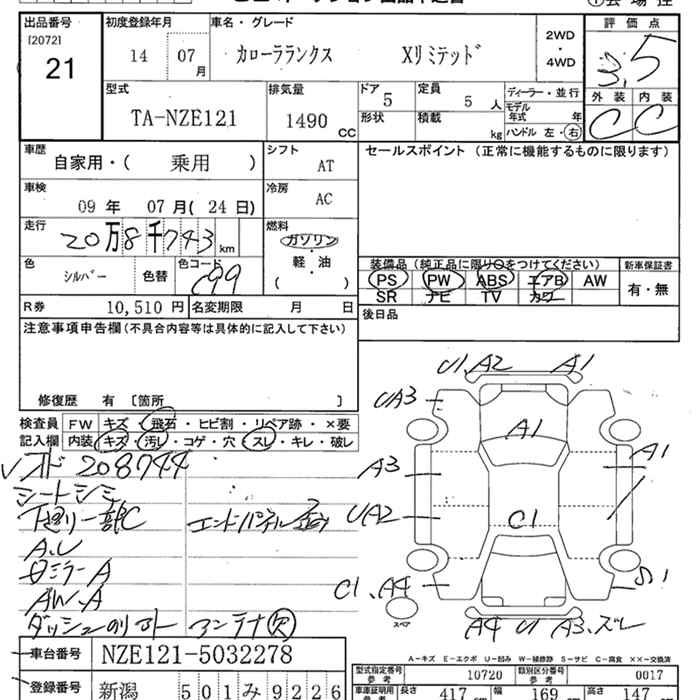 出品番号 初度登録年月 車名・グレード 評価点
[2072] 21 14 07月 カローラランクス Xリミテッド 2WD・4WD 3.5
型式 排気量 ドア 定員 ディーラー・並行 外装 内装
TA-NZE121 1490CC 5 5人 モデル年式 年 C C
形状 積載 kg ハンドル 左・右
車歴 シフト セールスポイント (正常に機能するものに限ります)
自家用・( 乗用 ) AT
車検 冷房
09年 07月(24日) AC
走行 燃料
20万8千743km ガソリン・軽・油
( )
装備品(純正品に限り○をつけてください) 新車保証書
色 色替 色コード PS PW ABS エアB AW 有・無
シルバー C99 SR ナビ TV カワ
R券 10,510円 名変期限 月 日 後日品
注意事項申告欄(不具合内容等は具体的に記入して下さい)
修復歴 有 〔箇所 〕
検査員 FW キズ・飛石・ヒビ割・リペア跡・×要
記入欄 内装 キズ・汚レ・コゲ・穴・スレ・キレ・破レ
208744
シートシミ
下廻り一部C エンドパネル
A.U
ミラーA
AW.A
アンテナ欠
U1,A2 A1
UA3
A1
A3 A1
UA2 C1
C1、A4 S1
スペア
A4 U1 A3、ズレ
車台番号 NZE121-5032278
A-キズ E-エクボ U-凹み W-補修跡 S-サビ C-腐食 ××-交換済
型式指定番号 10720 類別区分番号 0017
登録番号 新潟 501み9226
長さ 417cm 幅 169cm 高さ 147cm